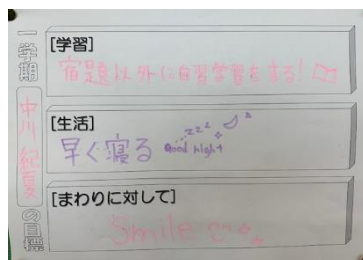 一学期 中川 紀夏 の目標
[学習]
宿題以外に自習学習をする!
[生活]
早く寝る zzz z
Good night
[まわりに対して]
Smile